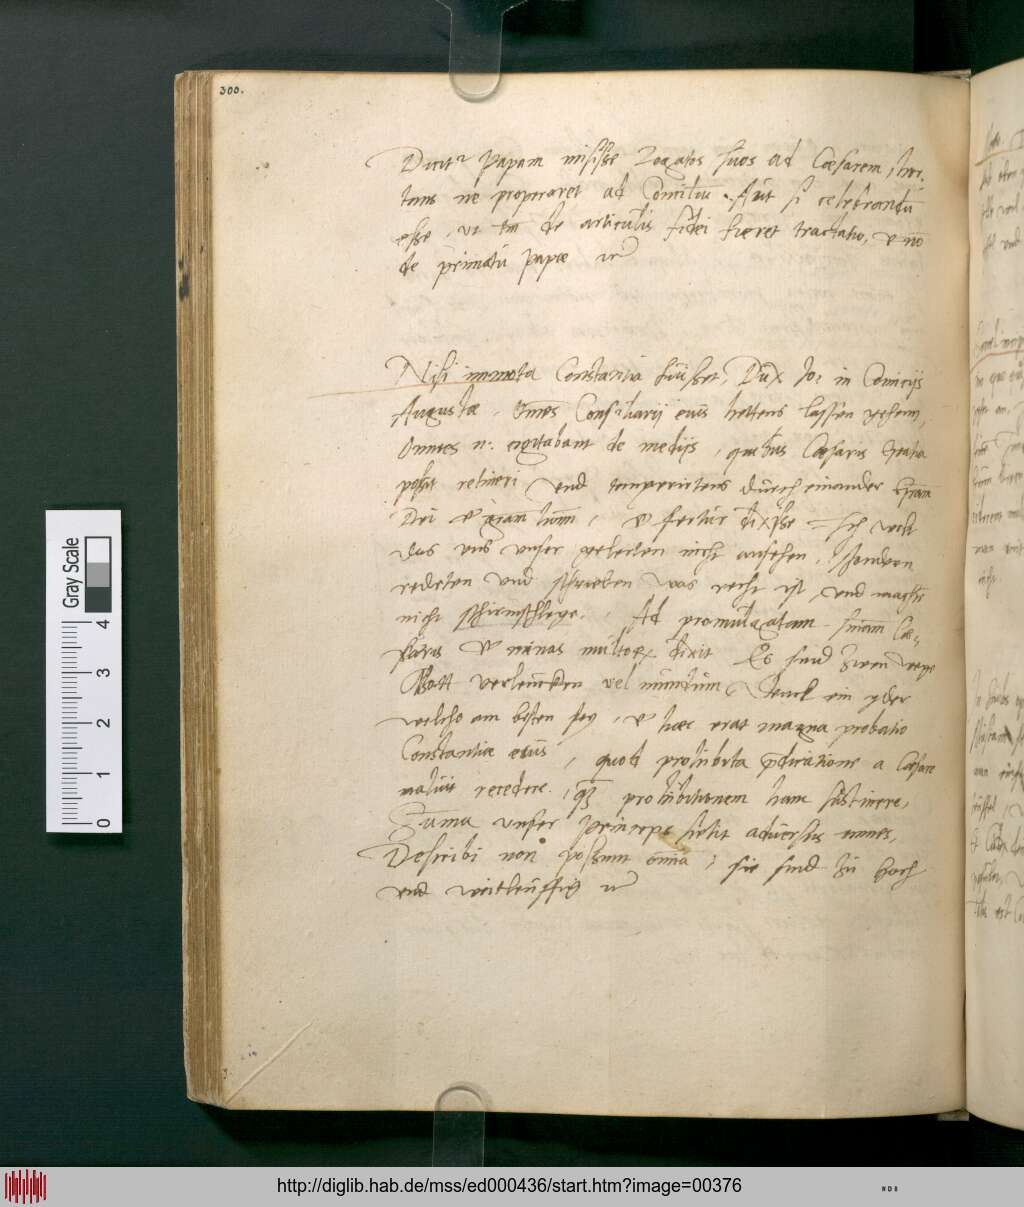 300.
Dicitr Papam misisse Legatos suos ad Caesarem, hor-
tans ne properaret ad Conciliū. Aut si celebrandū
esse, ut tm̄ de articulis fidei fieret tractatio, & nō
de primatu Papae
Nisi immota Constantia fuisset Dux Jo: in Comicijs
Augustae, Omēs Consiliarij eius hettens lassen gehenn,
Omnes n. cogitabant de medijs, quibus Caesaris gratia
posset retineri vnd temperirtens durch einander grām
Dei & grām homm, & fertur dixisse Ich wolt
das vns vnser gelerten nicht ansehen, sondern
redeten vnd schrieben was recht ist, vnd machtē
nicht schirmschlege. Ad promulgatam sniam Cae-
saris & minas multorx dixit Es sind zwen wege
Gott verleucken vel mundum Denck ein yder
welchs am besten sey, & haec erat magna probatio
Constantiae eius, quod prohibita p̄dicatione a Caesare
maluit recedere, q̄ prohibitionem hanc sustinere,
Summa vnser princeps stetit adversus omnes,
Describi non possunt omīa, sie sind zu hoch
vnd weitleufftig
Gray Scale
0 1 2 3 4
http://diglib.hab.de/mss/ed000436/start.htm?image=00376